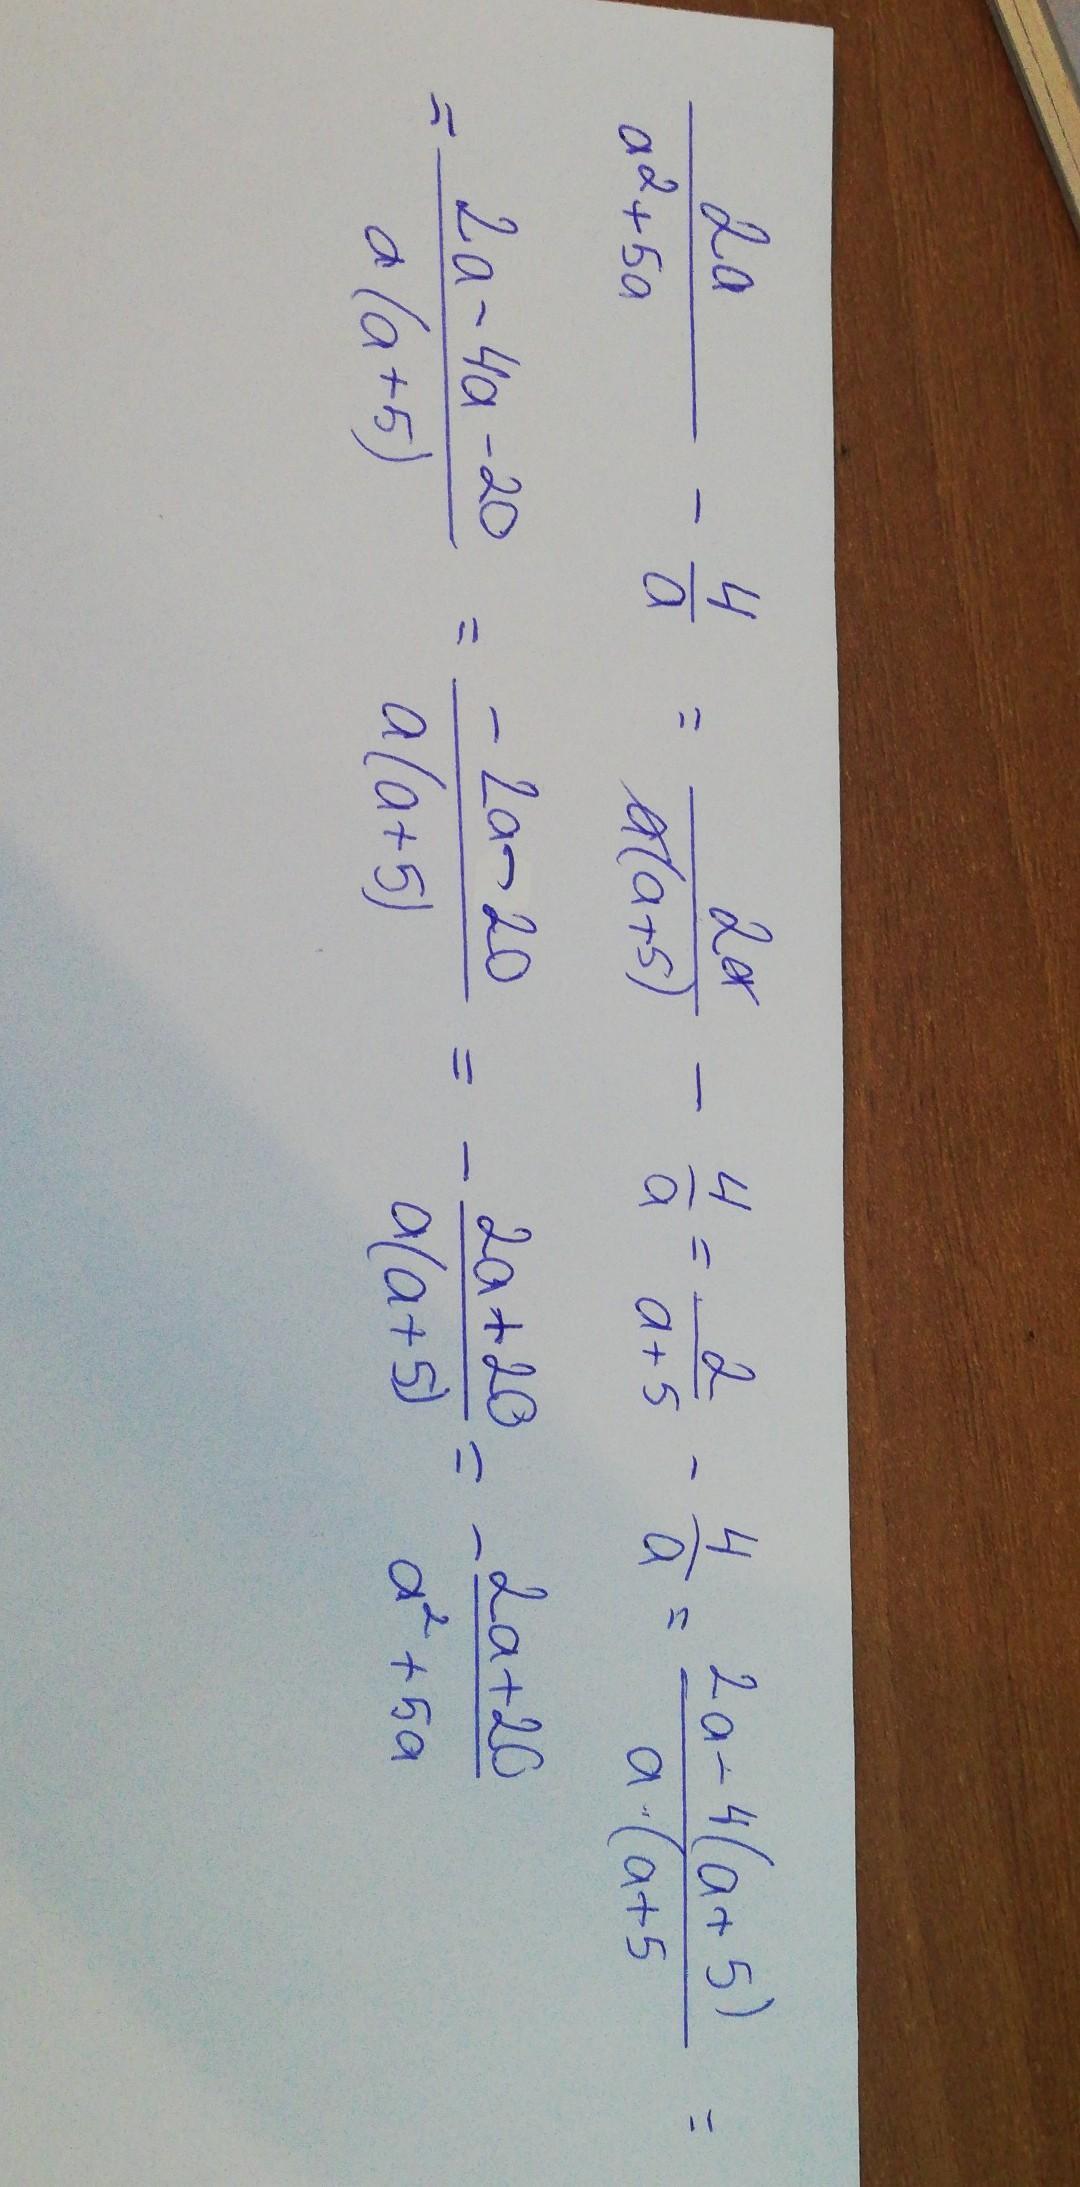 2a/(a²+5a) - 4/a = 2a/(a(a+5)) - 4/a = 2/(a+5) - 4/a = (2a-4(a+5))/(a·(a+5) =
= (2a-4a-20)/(a(a+5)) = (-2a-20)/(a(a+5)) = - (2a+20)/(a(a+5)) = - (2a+20)/(a²+5a)